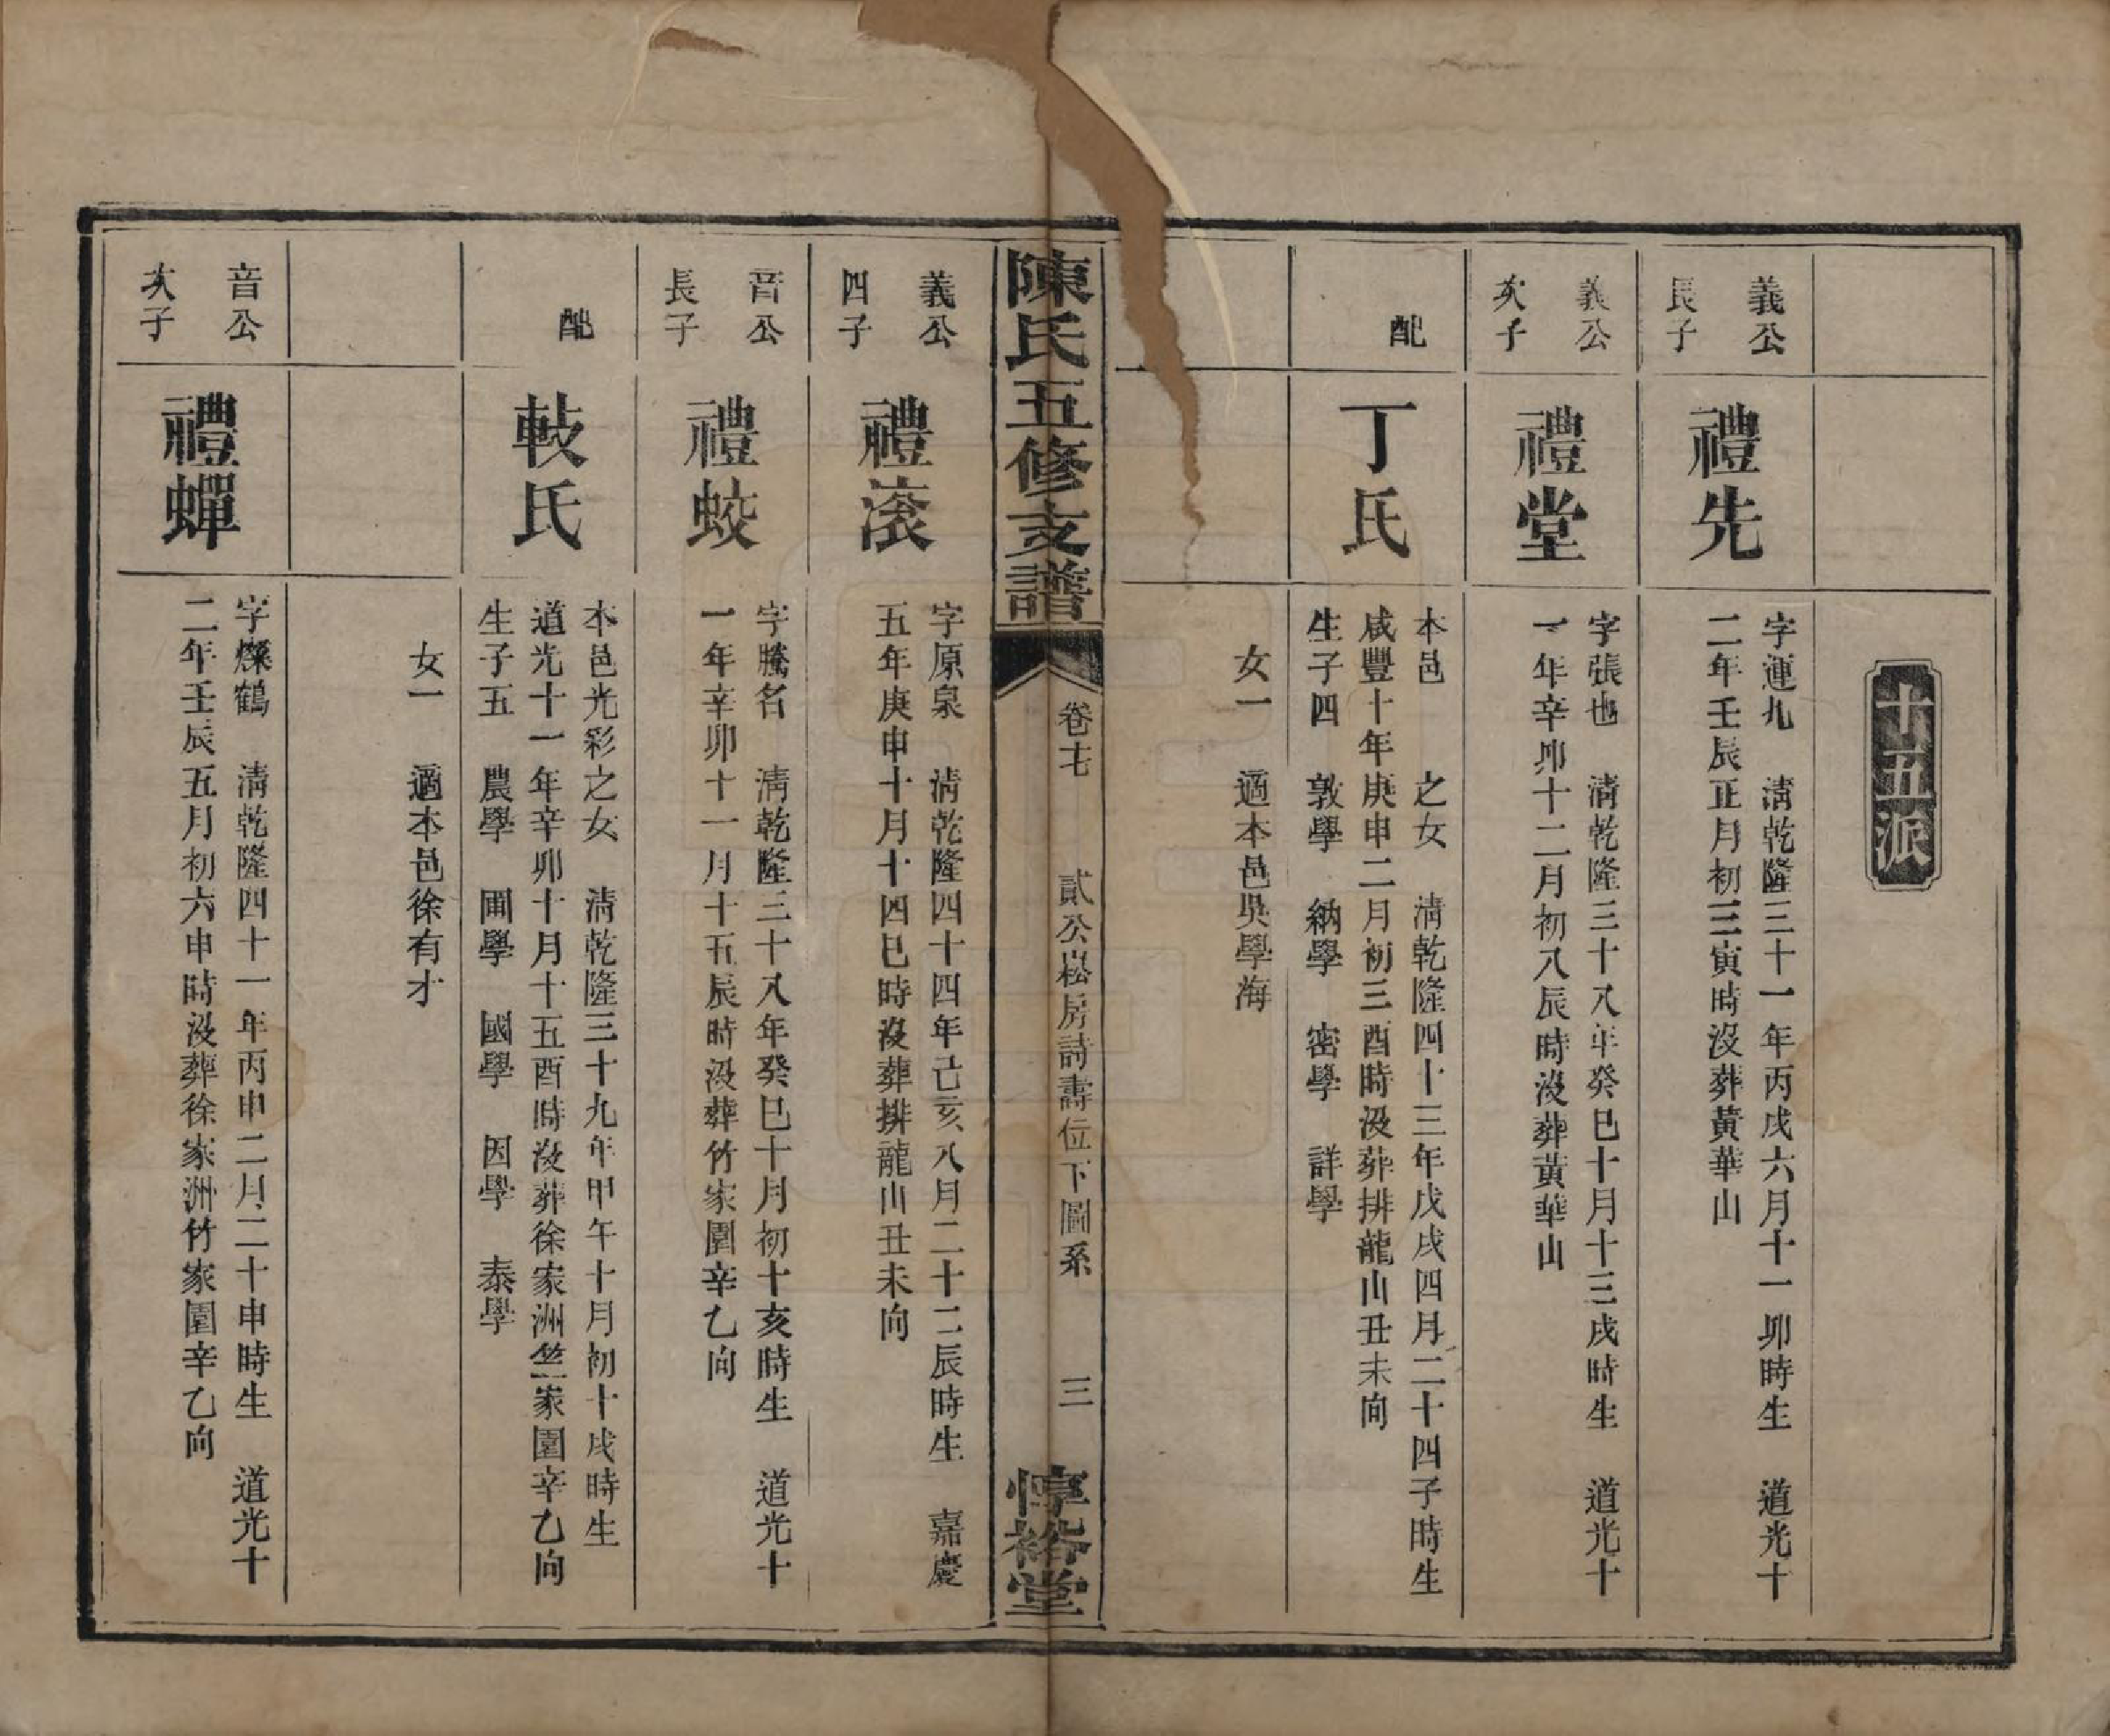 十五派
義公
長子
禮先
字運九　清乾隆三十一年丙戌六月十一卯時生　道光十
二年壬辰正月初三寅時沒葬黃華山
義公
次子
禮堂
字張也　清乾隆三十八年癸巳十月十三戌時生　道光十
一年辛卯十二月初八辰時沒葬黃華山
配
丁氏
本邑　　之女　清乾隆四十三年戊戌四月二十四子時生
咸豐十年庚申二月初三酉時沒葬排龍山丑未向
生子四　敦學　納學　密學　詳學
女一　適本邑吳學海
陳氏五修支譜
卷十七
貳公崧房詩壽位下圖系
三
惇裕堂
義公
四子
禮滾
字原泉　清乾隆四十四年己亥八月二十二辰時生　嘉慶
五年庚申十月十四巳時沒葬排龍山丑未向
音公
長子
禮蛟
字騰名　清乾隆三十八年癸巳十月初十亥時生　道光十
一年辛卯十一月十五辰時沒葬竹家園辛乙向
配
氏
本邑光彩之女　清乾隆三十九年甲午十月初十戌時生
道光十一年辛卯十月十五酉時沒葬徐家洲竺家園辛乙向
生子五　農學　圃學　國學　因學　泰學
女一　適本邑徐有才
音公
次子
禮蟬
字爍鶴　清乾隆四十一年丙申二月二十申時生　道光十
二年壬辰五月初六申時沒葬徐家洲竹家園辛乙向